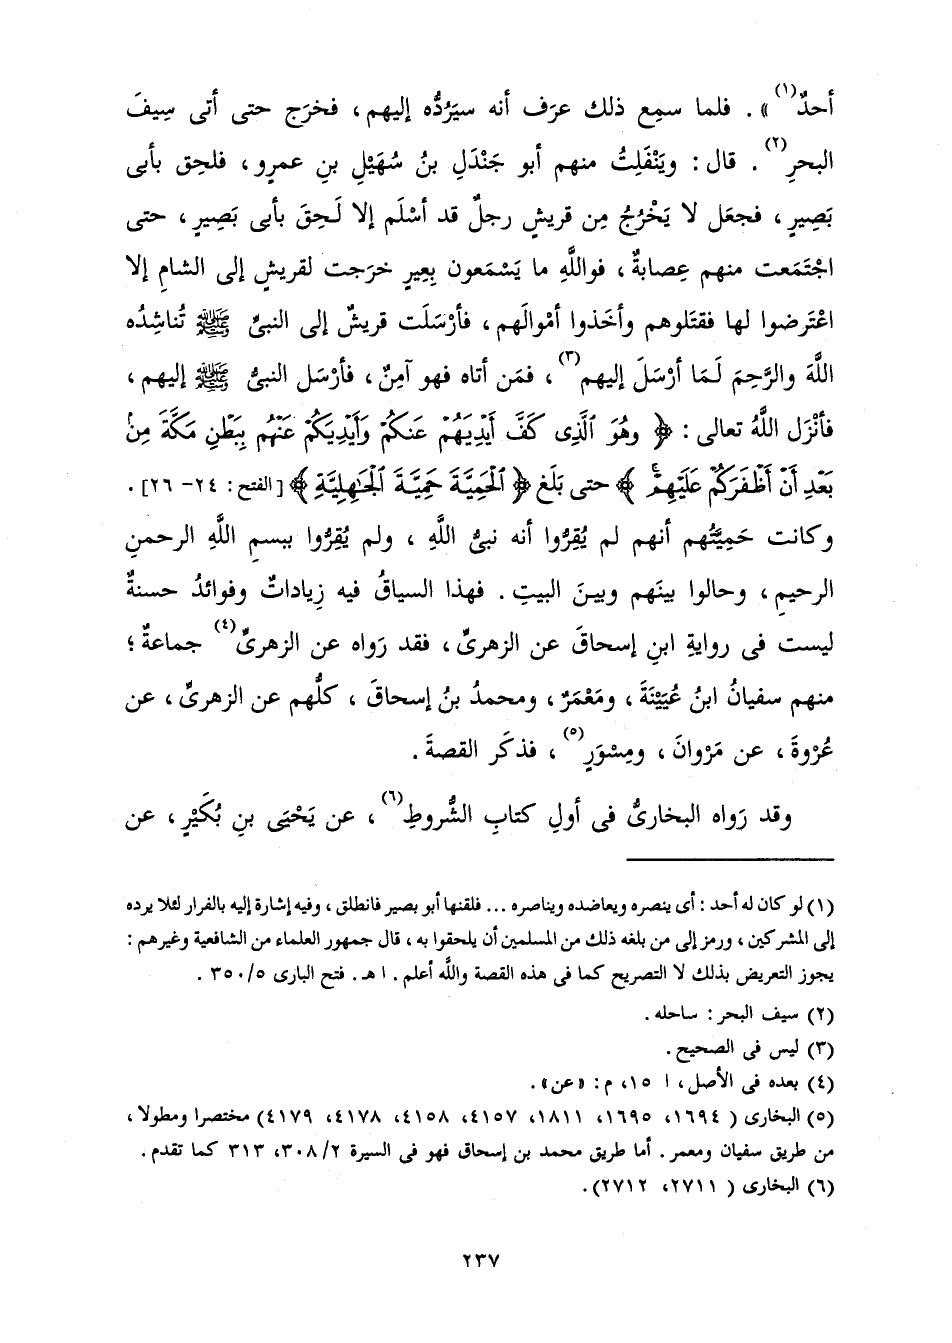 أحدٌ(١)». فلما سمِع ذلك عرَف أنه سيَرُدُّه إليهم، فخرَج حتى أتى سِيفَ
البحرِ(٢). قال: ويَنْفَلِتُ منهم أبو جَنْدَلِ بنُ سُهَيْلِ بنِ عمرٍو، فلحِق بأبى
بَصِيرٍ، فجعَل لا يَخْرُجُ مِن قريشٍ رجلٌ قد أسْلَم إلا لَحِقَ بأبى بَصِيرٍ، حتى
اجْتَمَعت منهم عِصابةٌ، فواللَّهِ ما يَسْمَعون بعِيرٍ خرَجت لقريشٍ إلى الشامِ إلا
اعْتَرضوا لها فقتَلوهم وأخَذوا أمْوالَهم، فأرْسَلَت قريشٌ إلى النبىِّ ﷺ تُناشِدُه
اللَّهَ والرَّحِمَ لَمَا أرْسَلَ إليهم(٣)، فمَن أتاه فهو آمِنٌ، فأرْسَل النبىُّ ﷺ إليهم،
فأنْزَل اللَّهُ تعالى: ﴿وَهُوَ ٱلَّذِى كَفَّ أَيْدِيَهُمْ عَنكُمْ وَأَيْدِيَكُمْ عَنْهُم بِبَطْنِ مَكَّةَ مِنۢ
بَعْدِ أَنْ أَظْفَرَكُمْ عَلَيْهِمْ﴾ حتى بَلَغ ﴿ٱلْحَمِيَّةَ حَمِيَّةَ ٱلْجَٰهِلِيَّةِ﴾ [الفتح: ٢٤- ٢٦].
وكانت حَمِيَّتُهم أنهم لم يُقِرُّوا أنه نبىُّ اللَّهِ، ولم يُقِرُّوا ببسمِ اللَّهِ الرحمنِ
الرحيمِ، وحالوا بينَهم وبينَ البيتِ. فهذا السياقُ فيه زِياداتٌ وفوائدُ حسنةٌ
ليست فى روايةِ ابنِ إسحاقَ عن الزهرىِّ، فقد رَواه عن الزهرىِّ(٤) جماعةٌ؛
منهم سفيانُ ابنُ عُيَيْنَةَ، ومَعْمَرٌ، ومحمدُ بنُ إسحاقَ، كلُّهم عن الزهرىِّ، عن
عُرْوةَ، عن مَرْوانَ، ومِسْوَرٍ(٥)، فذكَر القصةَ.
وقد رَواه البخارىُّ فى أولِ كتابِ الشُّروطِ(٦)، عن يَحْيَى بنِ بُكَيْرٍ، عن
(١) لو كان له أحد: أى ينصره ويعاضده ويناصره ... فلقنها أبو بصير فانطلق، وفيه إشارة إليه بالفرار لئلا يرده
إلى المشركين، ورمز إلى من بلغه ذلك من المسلمين أن يلحقوا به، قال جمهور العلماء من الشافعية وغيرهم:
يجوز التعريض بذلك لا التصريح كما فى هذه القصة واللَّه أعلم. ا هـ. فتح البارى ٣٥٠/٥.
(٢) سيف البحر: ساحله.
(٣) ليس فى الصحيح.
(٤) بعده فى الأصل، ا ١٥، م: «عن».
(٥) البخارى (١٦٩٤، ١٦٩٥، ١٨١١، ٤١٥٧، ٤١٥٨، ٤١٧٨، ٤١٧٩) مختصرا ومطولا،
من طريق سفيان ومعمر. أما طريق محمد بن إسحاق فهو فى السيرة ٣٠٨/٢، ٣١٣ كما تقدم.
(٦) البخارى (٢٧١١، ٢٧١٢).
٢٣٧